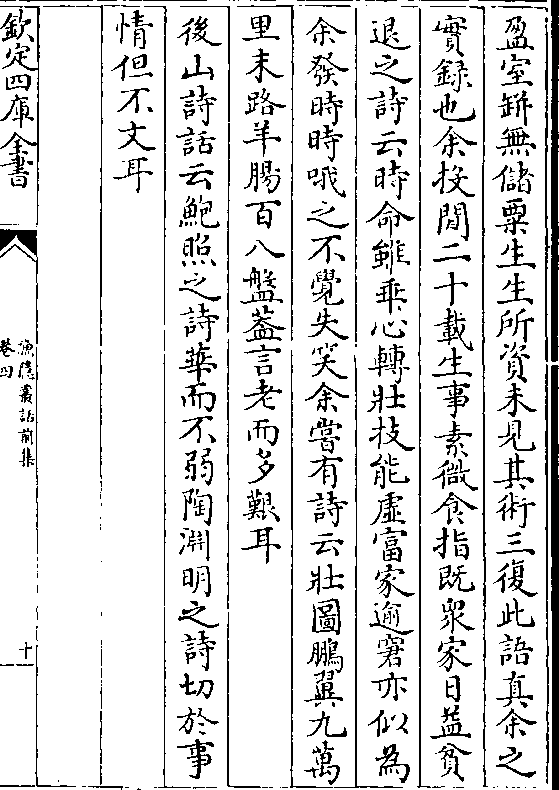 盈室缾無儲粟生生所資未見其術三復此語真余之
實録也余投閒二十載生事素微食指既衆家日益貧
退之詩云時命雖乖心轉壯技能虛富家逾窘亦似為
余發時時哦之不覺失笑余嘗有詩云壯圖鵬翼九萬
里末路羊腸百八盤葢言老而多艱耳
後山詩話云鮑照之詩華而不弱陶淵明之詩切於事
情但不文耳
欽定四庫全書
漁隱叢話前集
卷四
十